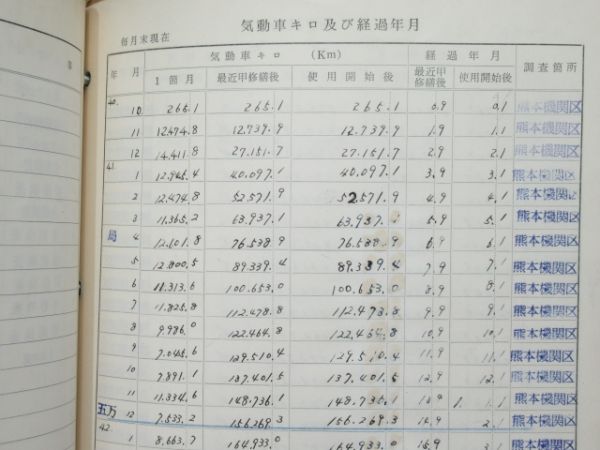 気動車キロ及び経過年月
毎月末現在
年 月 気動車キロ (Km) 経過年月 調査箇所
1箇月 最近甲修繕後 使用開始後 最近甲修繕後 使用開始後
40. 10 265.1 265.1 265.1 0.9 0.1 熊本機関区
11 12474.8 12.739.9 12.739.9 1.9 1.1 熊本機関区
12 14.411.8 27.151.7 27.151.7 2.9 2.1 熊本機関区
41. 1 12.945.4 40.097.1 40.097.1 3.9 3.1 熊本機関区
2 12.474.8 52.571.9 52.571.9 4.9 4.1 熊本機関区
3 11.365.2 63.937.1 63.937. 5.9 5.1 熊本機関区
局 4 12.601.8 76.538.9 76.538.9 6.9 6.1 熊本機関区
5 12.800.5 89.339.4 89.339.4 7.9 7.1 熊本機関区
6 11.313.6 100.653.0 100.653.0 8.9 8.1 熊本機関区
7 11.825.8 112.478.8 112.478.8 9.9 9.1 熊本機関区
8 9.986.0 122.464.8 122.464.8 10.9 10.1 熊本機関区
9 7.045.6 129.510.4 129.510.4 11.9 11.1 熊本機関区
10 7.891.1 137.401.5 137.401.5 12.9 12.1 熊本機関区
11 11.334.6 148.736.1 148.736.1 13.9 1. 1.1 熊本機関区
五万 12 7.533.2 156.269.3 156.269.3 14.9 2.1 熊本機関区
42. 1 8.663.7 164.933.0 164.933.0 15.9 3.1 熊本機関区